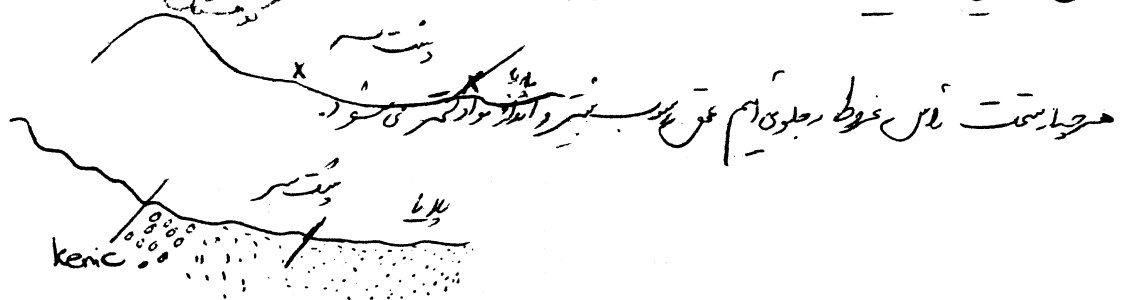 کوهستان
دشت سر
پلایا
هر چه از سمت رأس مخروط به جلو می آییم عمق رسوب بیشتر و اندازه مواد کمتر می شود.
دشت سر
پلایا
kenic